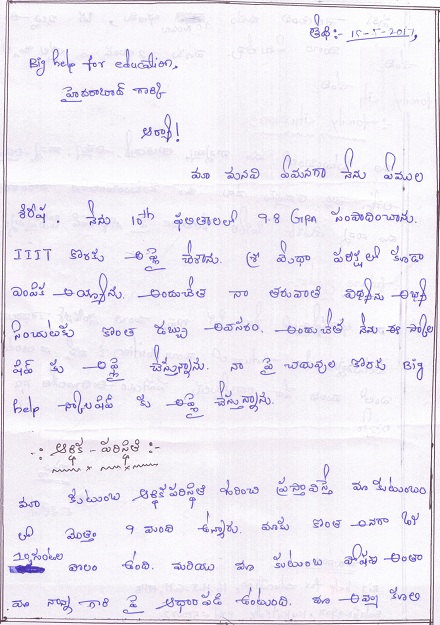 తేది:- 15-5-2017,
Big help for education,
హైదరాబాద్ గారికి
ఆర్యా!
మా మనవి ఏమనగా నేను ఏముల
శిరీష. నేను 10th ఫలితాలలో 9.8 Gpa సంపాదించాను.
IIIT కొరకు అప్లై చేశాను. శ్రీ మేధా పరీక్షలో కూడా
ఎంపిక అయ్యాను. అందుచేత నా తరువాతి విద్యను అభ్య
సించుటకు కొంత డబ్బు అవసరం. అందుచేత నేను ఈ స్కాల
షిప్ కు అప్లై చేస్తున్నాను. నా పై చదువుల కొరకు Big
help స్కాలషిప్ కు అప్లై చేస్తున్నాను.
∴ ఆర్థిక - పరిస్థితి :-
మా కుటుంబ ఆర్థిక పరిస్థితి గురించి ప్రస్తావిస్తే మా కుటుంబం
లో మొత్తం 9 మంది ఉన్నారు. మాకు కొంత అనగా
పొలం ఉంది. మరియు మా కుటుంబ పోషణ అంతా
మా నాన్న గారి పై ఆధారపడి ఉంటుంది. మా అమ్మ కూలి